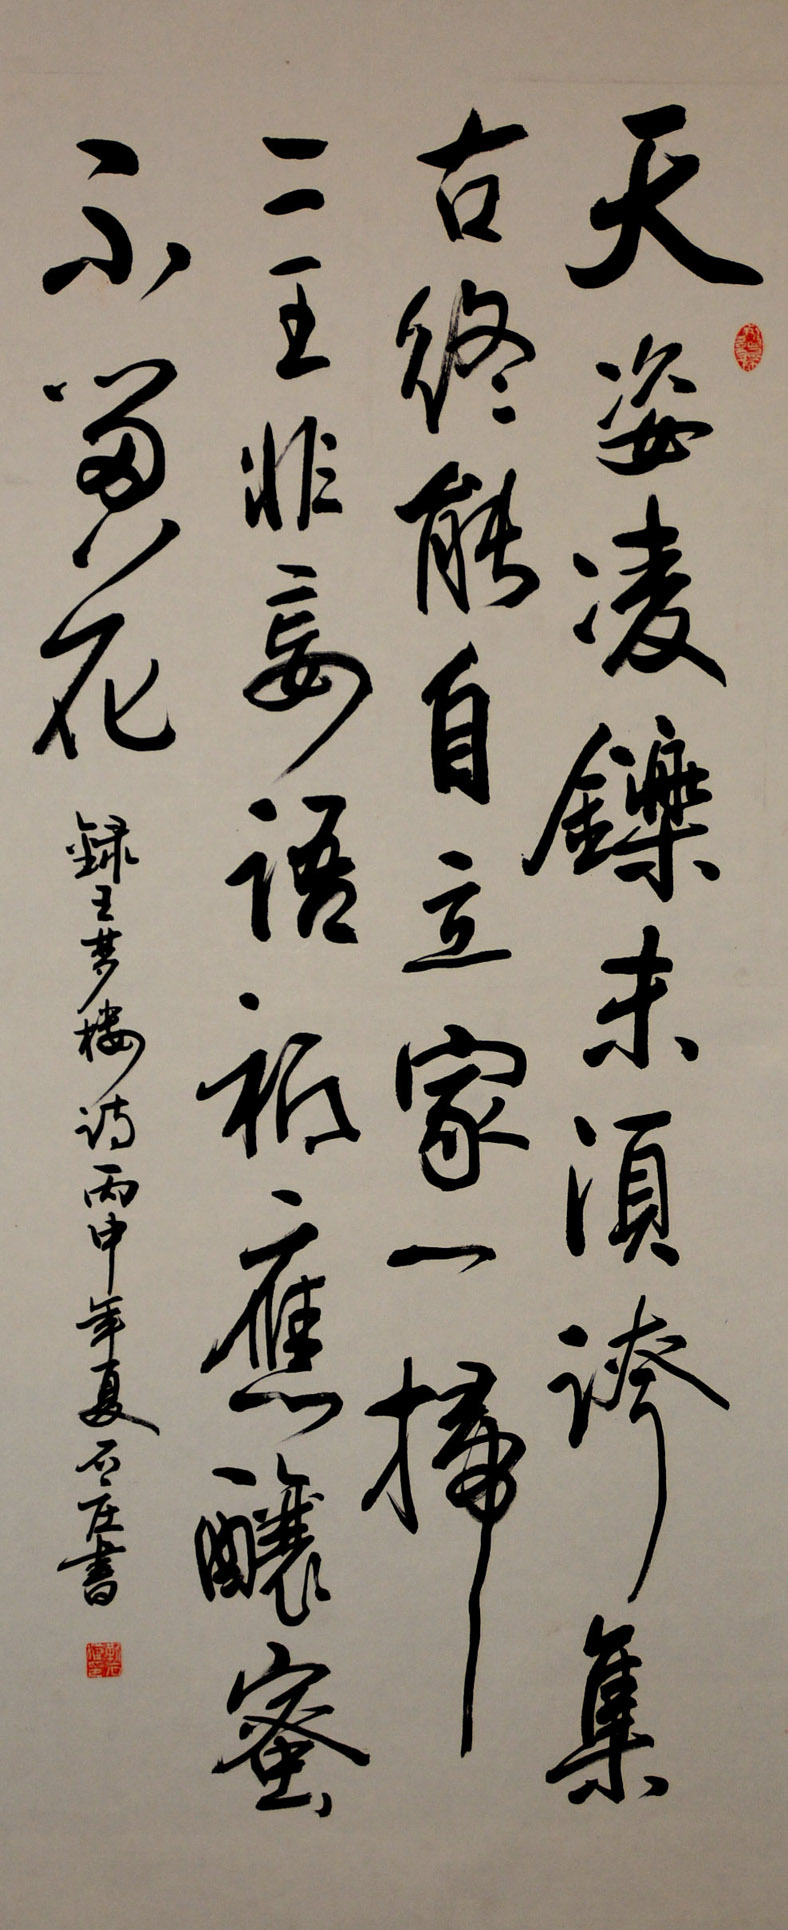 天姿凌鑠未須誇集
古終能自立家一掃
二王非妄語祇應釀蜜
不留花
録王梦楼詩丙申年夏石庄書